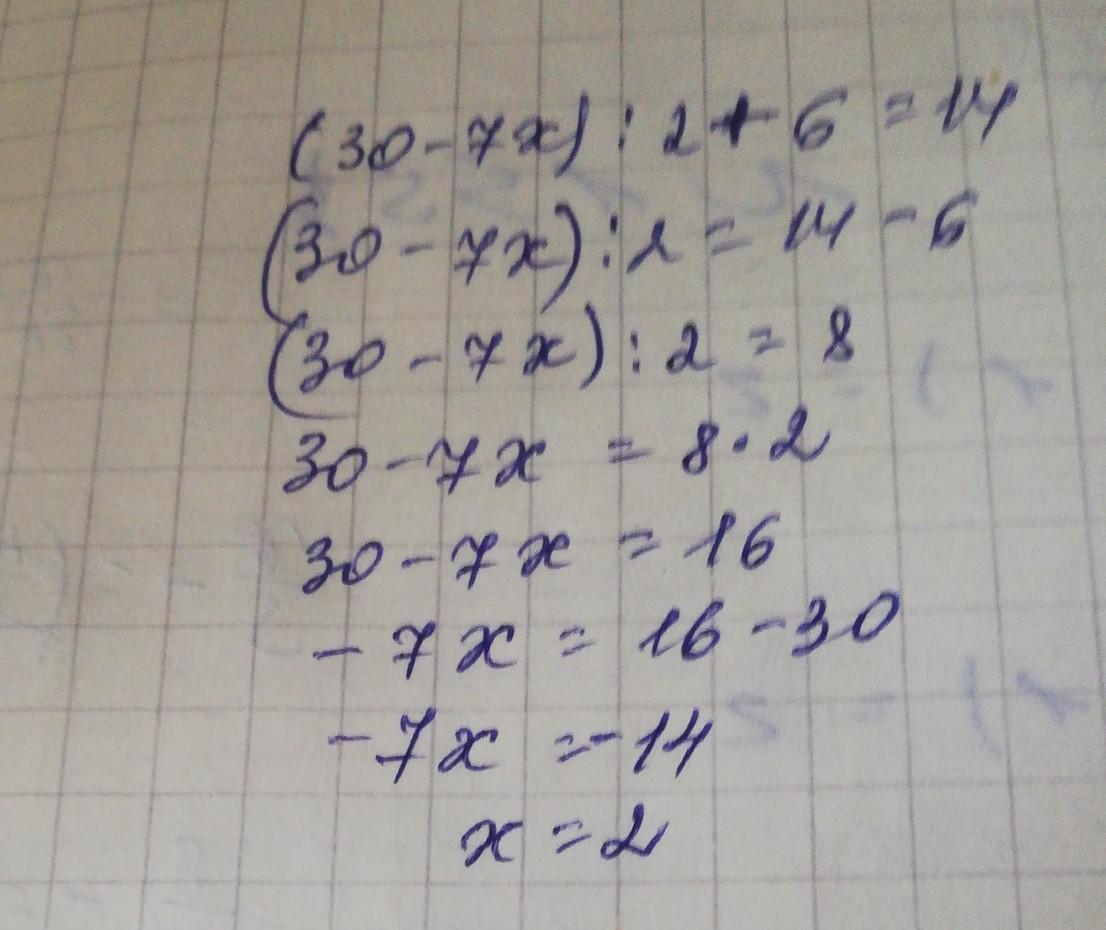 (30-7x):2+6=14
(30-7x):2=14-6
(30-7x):2=8
30-7x=8·2
30-7x=16
-7x=16-30
-7x=-14
x=2